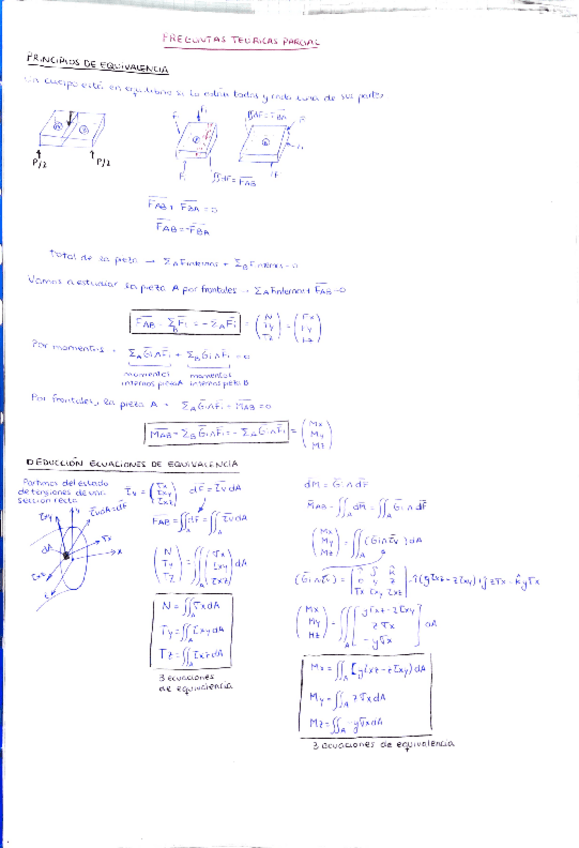 PREGUNTAS TEORICAS PARCIAL
PRINCIPIOS DE EQUIVALENCIA
Un cuerpo está en equilibrio si lo están todas y cada una de sus partes
P/2 P/2
∬dF = F_AB
F_AB + F_BA = 0
F_AB = -F_BA
Total de la pieza → Σ_A F internas + Σ_B F internas = 0
Vamos a estudiar la pieza A por frontales → Σ_A F internas + F_AB = 0
F_AB = Σ_B Fi = - Σ_A Fi = (N Ty Tz) = (Fx Fy Fz)
Por momentos → Σ_A Gi∧Fi + Σ_B Gi∧Fi = 0
momentos momentos
internos pieza A internos pieza B
Por frontales, la pieza A → Σ_A Gi∧Fi + M_AB = 0
M_AB = Σ_B Gi∧Fi = - Σ_A Gi∧Fi = (Mx My Mz)
DEDUCCIÓN ECUACIONES DE EQUIVALENCIA
Partimos del estado
de tensiones de una
sección recta
τv = (σx τxy τxz) dF = τv dA
F_AB = ∬_A dF = ∬_A τv dA
(N Ty Tz) = ∬_A (σx τxy τxz) dA
N = ∬_A σx dA
Ty = ∬_A τxy dA
Tz = ∬_A τxz dA
3 ecuaciones
de equivalencia
dM = Gi ∧ dF
M_AB = ∬_A dM = ∬_A Gi ∧ dF
(Mx My Mz) = ∬_A (Gi∧τv) dA
(Gi∧τv) = |i j k; 0 y z; σx τxy τxz| = i(yτxz - zτxy) + j zσx - k yσx
(Mx My Mz) = ∬_A [yτxz - zτxy; zσx; -yσx] dA
Mx = ∬_A [yτxz - zτxy) dA
My = ∬_A zσx dA
Mz = ∬_A -yσx dA
3 ecuaciones de equivalencia